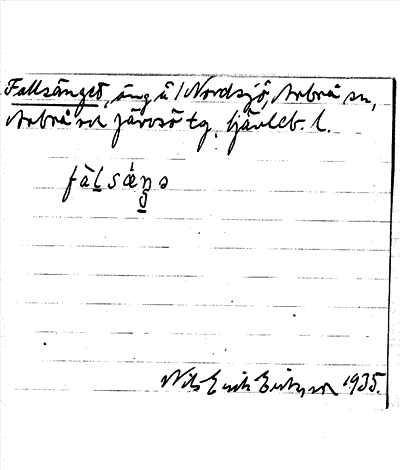 Fallsänget, äng å 1 Nordsjö, Arbrå sn,
Arbrå och Järvsö tg. Gävleb. l.
fàḷsǽŋə
Nils Erik Eriksson 1935.